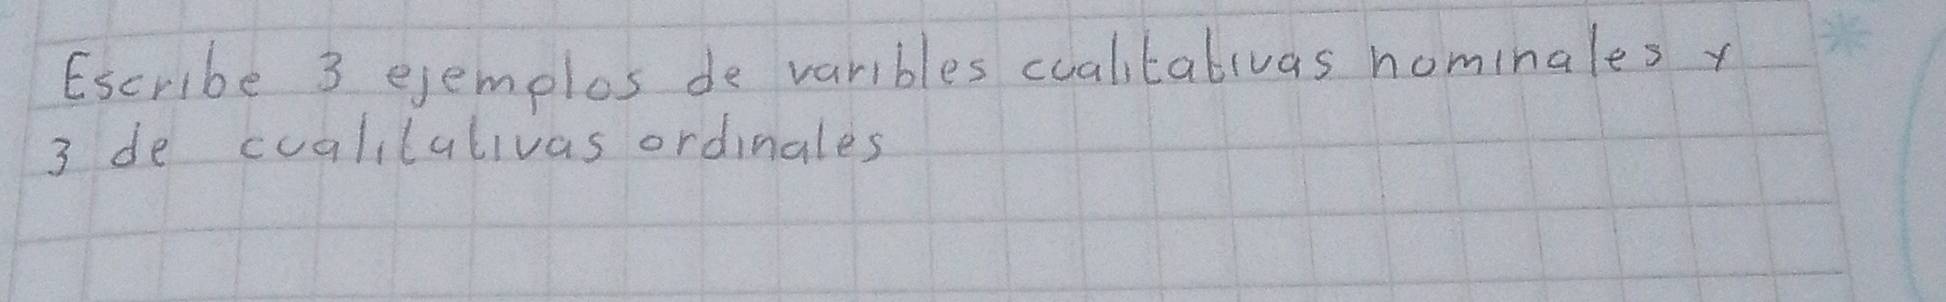 Escribe 3 ejemplos de varibles cualitativas nominales y
3 de cualitativas ordinales